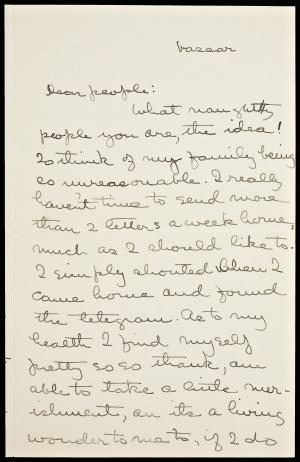 Vassar
Dear people:
What naughty
people you are, the idea!
To think of my family being
so unreasonable. I really
haven't time to send more
than 2 letters a week home,
much as I should like to.
I simply shouted when I
came home and found
the telegram. As to my
health I find myself
pretty so so thank, am
able to take a little nur-
ishment, an its a living
wonder to me to, if I do